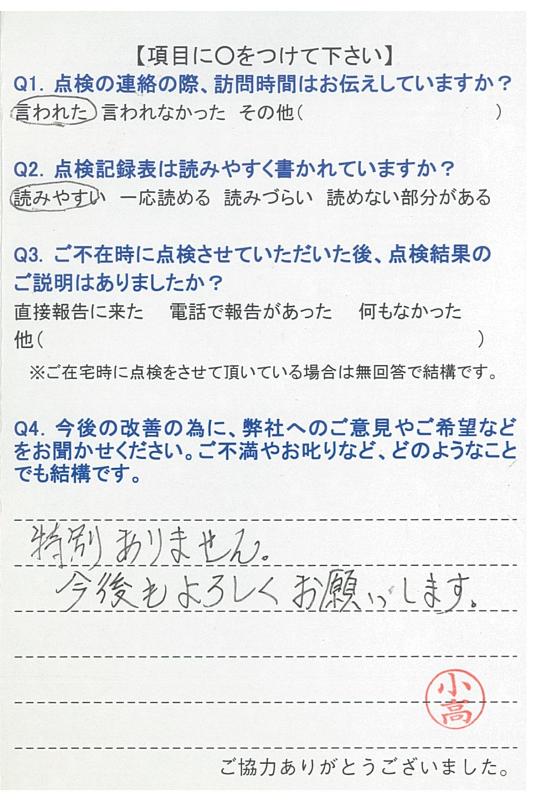 【項目に〇をつけて下さい】
Q1. 点検の連絡の際、訪問時間はお伝えしていますか？
言われた 言われなかった その他(　　　　　　　　　　)
Q2. 点検記録表は読みやすく書かれていますか？
読みやすい 一応読める 読みづらい 読めない部分がある
Q3. ご不在時に点検させていただいた後、点検結果の
ご説明はありましたか？
直接報告に来た　電話で報告があった　何もなかった
他(　　　　　　　　　　　　　　　　　　　　　　)
※ご在宅時に点検をさせて頂いている場合は無回答で結構です。
Q4. 今後の改善の為に、弊社へのご意見やご希望など
をお聞かせください。ご不満やお叱りなど、どのようなこと
でも結構です。
特別ありません。
今後もよろしくお願いします。
小高
ご協力ありがとうございました。